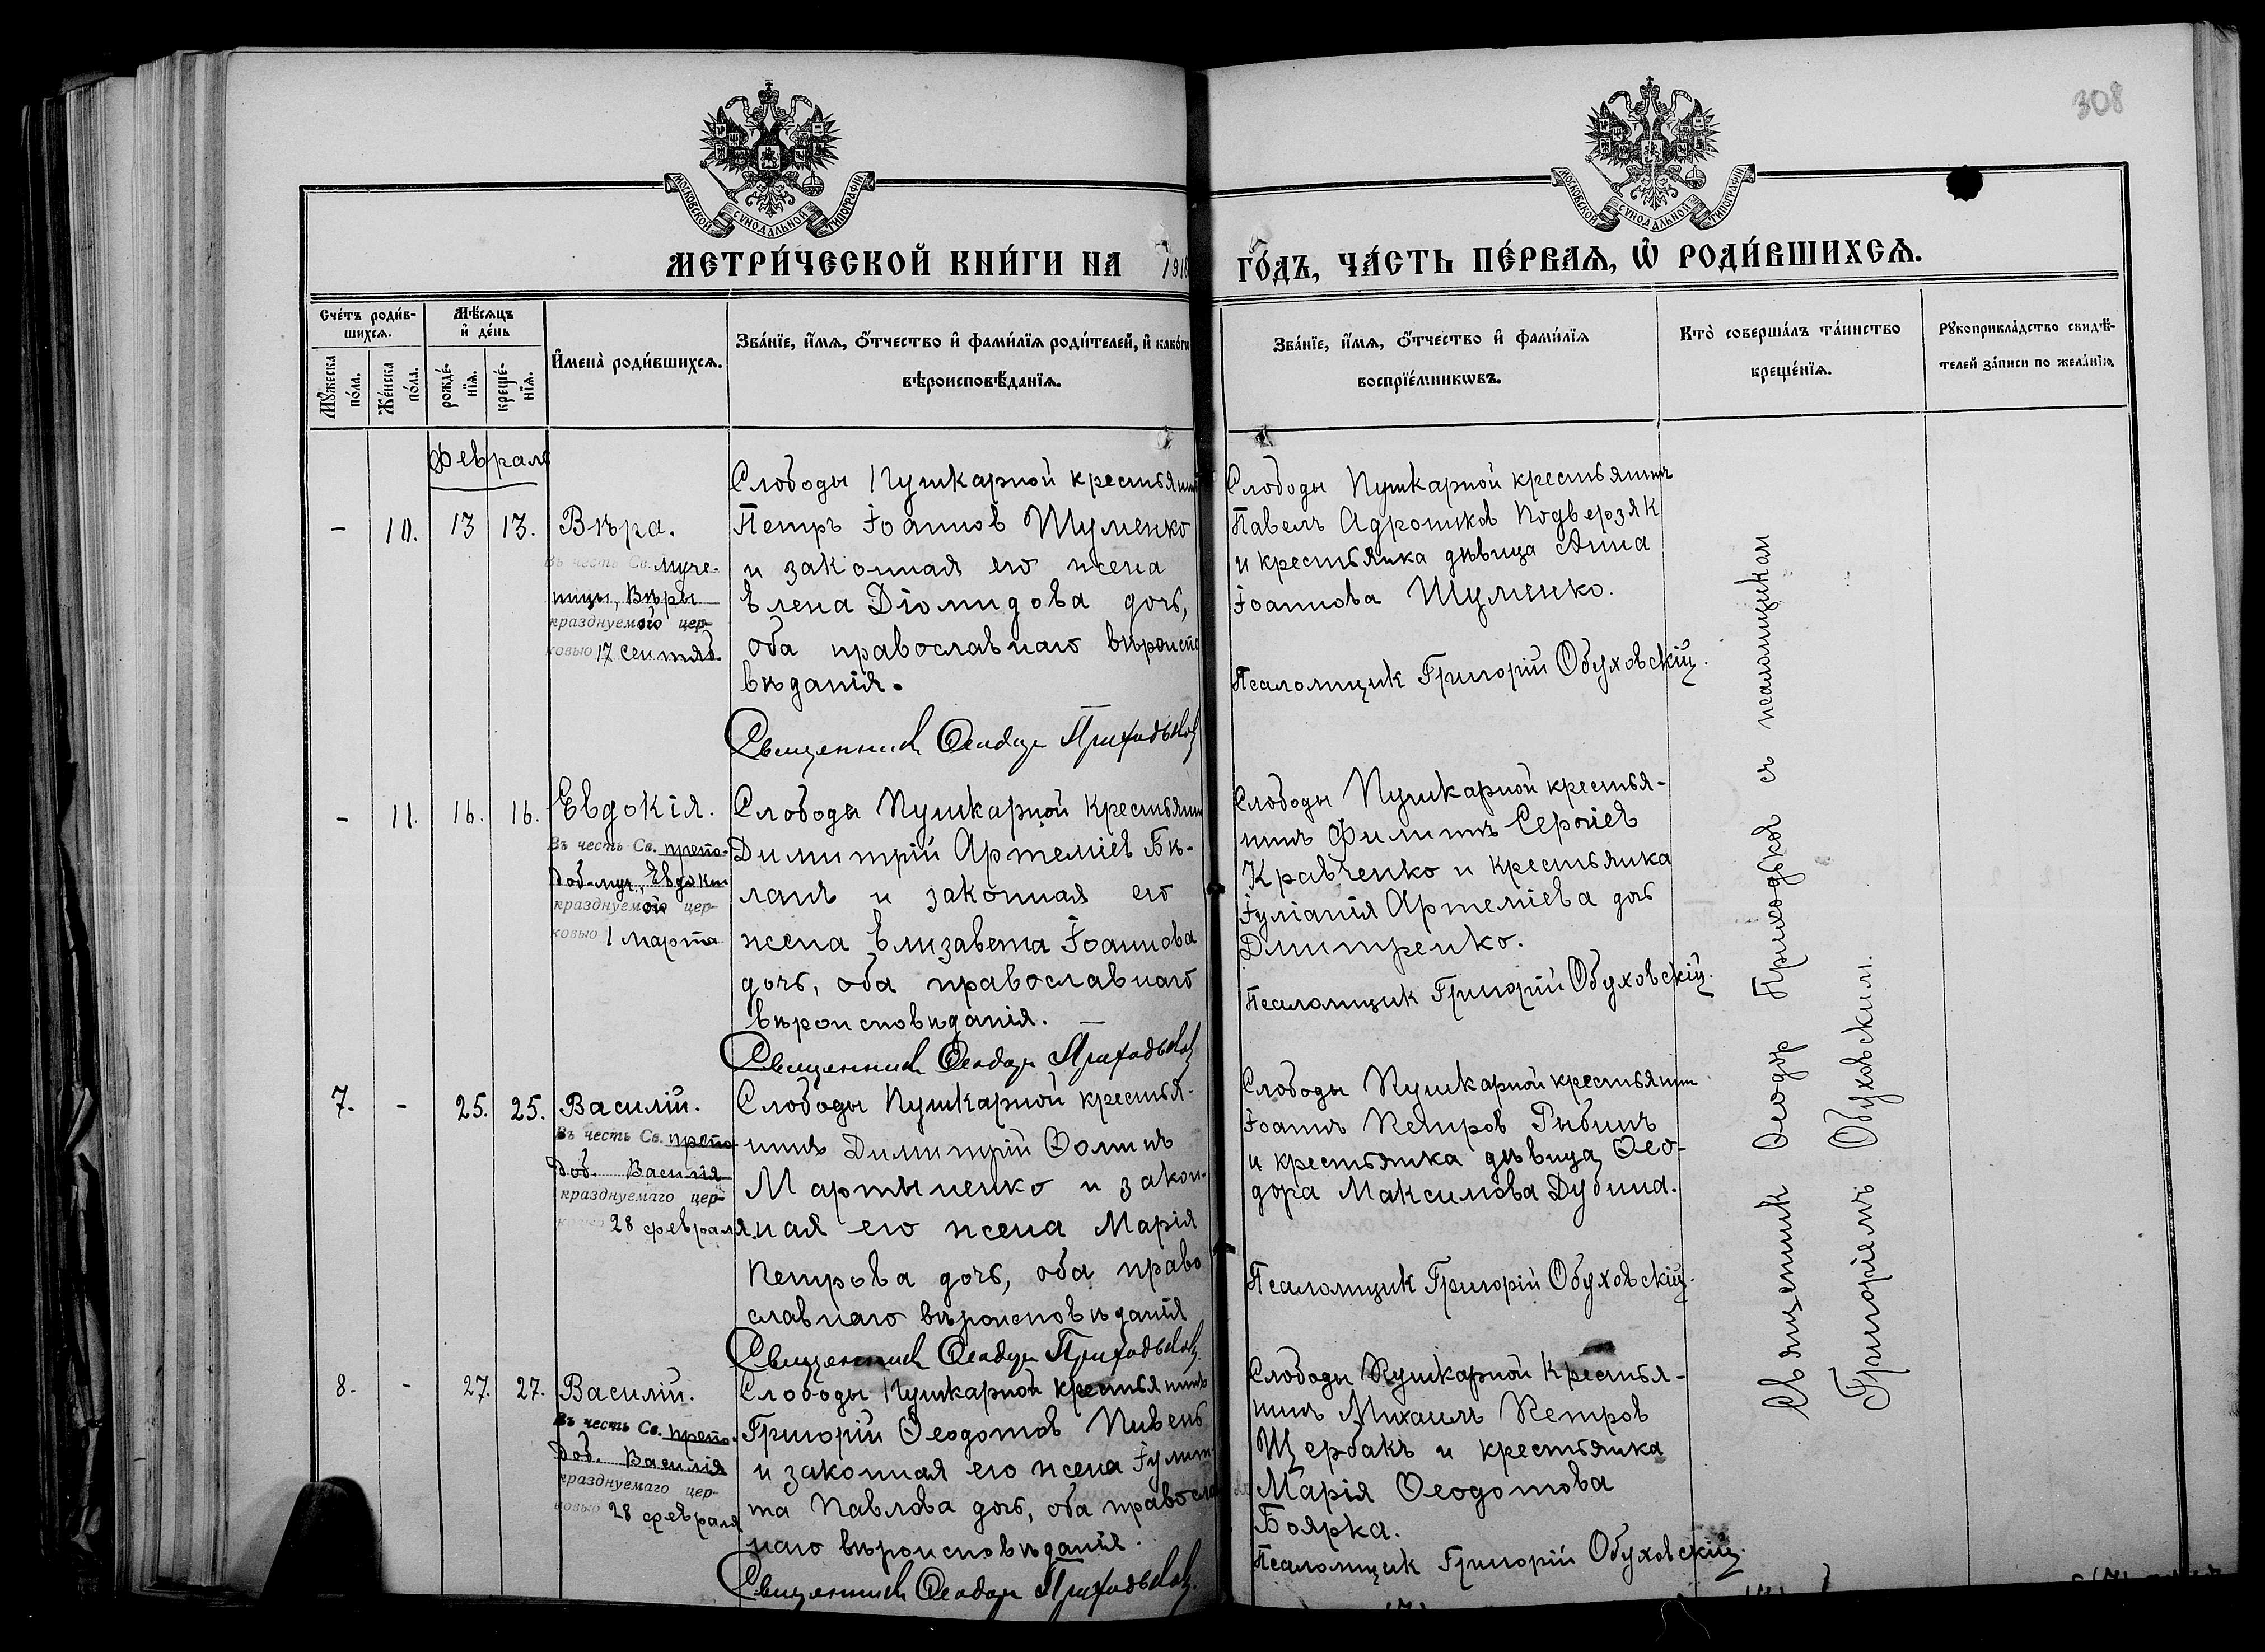 308
МОСКОВСКОЙ СѴНОДАЛЬНОЙ ТИПОГРАФІИ
МОСКОВСКОЙ СѴНОДАЛЬНОЙ ТИПОГРАФІИ
МЕТРИ́ЧЕСКОЙ КНИ́ГИ НА 191
ГО́ДЪ, ЧА́СТЬ ПЕ́РВАѦ, Ѡ҆ РОДИ́ВШИХСѦ.
Сче́тъ роди́в-
шихсѧ.
Мꙋ́жеска
по́ла.
Же́нска
по́ла.
Мѣ́сѧцъ
и҆ де́нь
рожде́-
нїѧ.
креще́-
нїѧ.
И҆мена̀ роди́вшихсѧ.
Зва́нїе, и҆́мѧ, ѻ҆́тчество и҆ фами́лїѧ роди́телей, и҆ како́гѡ
вѣроисповѣ́данїѧ.
Зва́нїе, и҆́мѧ, ѻ҆́тчество и҆ фами́лїѧ
воспрїе́мникѡвъ.
Кто̀ соверша́лъ та́инство
креще́нїѧ.
Рꙋкоприкла́дство свидѣ́-
телей за́писи по жела́нїю.
февраль
- 10. 13 13. Вѣра.
Въ честь Св. муче-
ницы, Вѣры
празднуемой цер-
ковью 17 Сентяб
Слободы Пушкарной крестьянинъ
Петръ Іоаннов Шуменко
и законная его жена
Елена Діомидова дочь,
оба православнаго вѣроиспо
вѣданія.
Священник Феодор Приходьков
Слободы Пушкарной крестьянинъ
Павелъ Адроников Подверзяк
и крестьянка дѣвица Анна
Іоаннова Шуменко.
Псаломщик Григорій Обуховскій.
- 11. 16. 16. Евдокія.
Въ честь Св. препо-
доб-муч. Евдокіи
празднуемой цер-
ковью 1 марта
Слободы Пушкарной крестьянин
Димитрій Артеміев Бѣ-
ланъ и законная его
жена Елизавета Іоаннова
дочь, оба православнаго
вѣроисповѣданія.
Священник Феодор Приходьков
Слободы Пушкарной крестья-
нинъ Филиппъ Сергіев
Кравченко и крестьянка
Іуліанія Артеміева дочь
Дмитренко.
Псаломщик Григорій Обуховскій.
7. - 25. 25. Василій.
Въ честь Св. препо-
доб. Василія
празднуемаго цер-
ковью 28 февраля.
Слободы Пушкарной крестья-
нинъ Димитрій Фоминъ
Мартыненко и закон-
ная его жена Марія
Петрова дочь, оба право
славнаго вѣроисповѣданія
Священник Феодор Приходьков.
Слободы Пушкарной крестьянин
Іоаннъ Петров Рыбинъ
и крестьянка дѣвица Ѳео-
дора Максимова Дубина.
Псаломщик Григорій Обуховскій.
8. - 27. 27. Василій.
Въ честь Св. препо-
доб. Василія
празднуемаго цер-
ковью 28 февраля
Слободы Пушкарной крестьянинъ
Григорій Ѳеодотов Пивень
и законная его жена Іулит-
та Павлова дочь, оба правосла
наго вѣроисповѣданія.
Священник Феодор Приходьков.
Слободы Пушкарной крестья-
нинъ Михаилъ Петров
Щербакъ и крестьянка
Марія Ѳеодотова
Боярка.
Псаломщик Григорій Обуховскій.
Священник Ѳеодор Приходьков съ псаломщикам
Григоріемъ Обуховским.